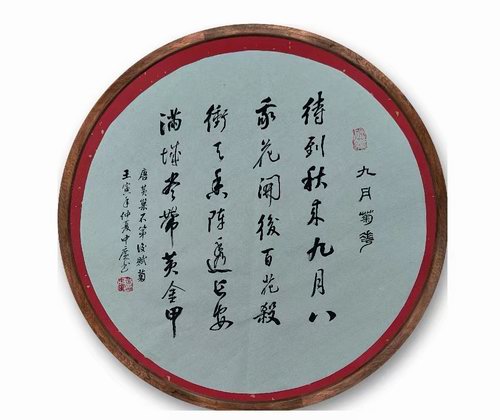 九月菊花
待到秋来九月八
我花開後百花殺
衝天香阵透长安
满城尽帶黄金甲
唐黄巢不第後赋菊
壬寅年仲夏